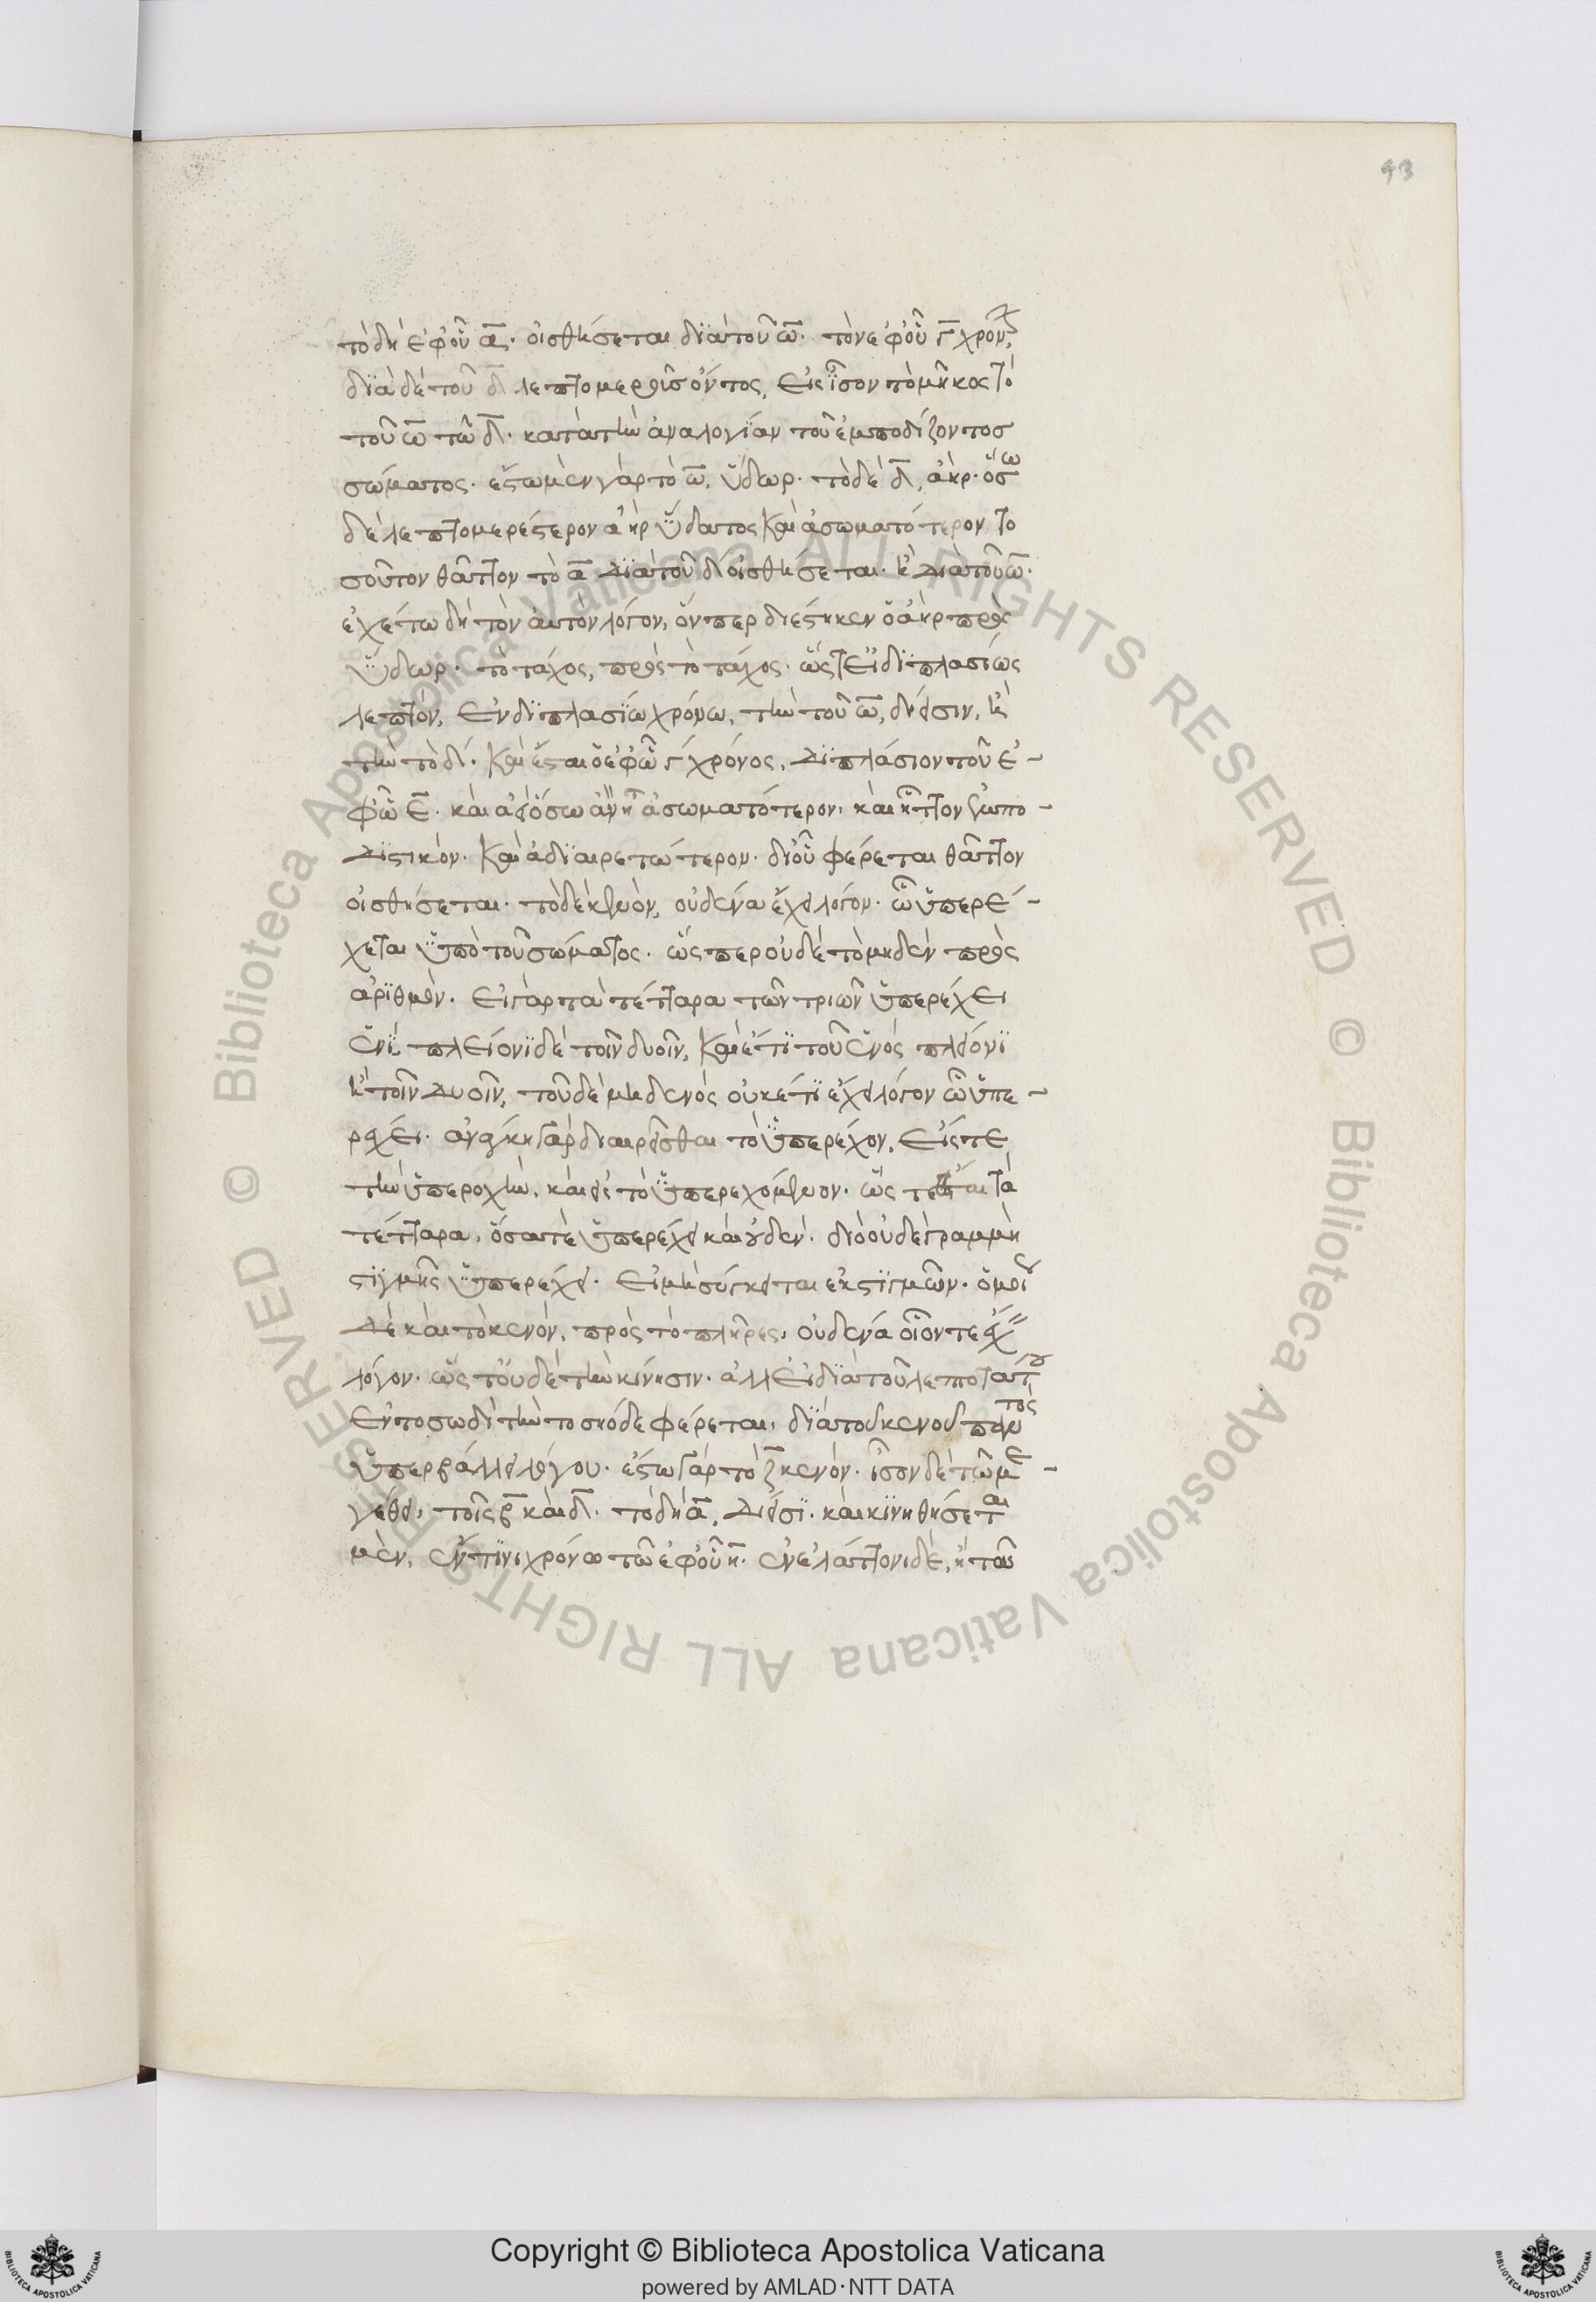 93
τὸ δὴ ἐφ οὗ α. οἰσθήσεται διὰ τοῦ ω. τὸν ἐφ οὗ γ χρόνον,
διὰ δὲ τοῦ δ λεπτομεροῦς ὄντος, εἰ ἴσον τὸ μῆκος τὸ
τοῦ ω τῶ δ. κατὰ τὴν ἀναλογίαν τοῦ ἐμποδίζοντος
σώματος. ἔστω μὲν γὰρ τὸ ω, ὕδωρ. τὸ δὲ δ, ἀὴρ. ὅσω
δὲ λεπτομερέστερον ἀὴρ ὕδατος καὶ ἀσωματότερον το
σοῦτον θᾶττον τὸ α διὰ τοῦ δ οἰσθήσεται. ἢ διὰ τοῦ ω.
ἐχέτω δὴ τὸν αὐτὸν λόγον, ὅνπερ διέστηκεν ὁ ἀὴρ πρὸς
ὕδωρ. τὸ τάχος, πρὸς τὸ τάχος. ὥστ εἰ διπλασίως
λεπτόν, ἐν διπλασίω χρόνω, τὴν τοῦ ω, δίεισιν, ἢ
τὴν τὸ δ. καὶ ἔσται ὁ ἐφ ὧ γ χρόνος, διπλάσιον τοῦ ἐ-
φ ὧ ε. καὶ ἀεὶ ὅσω ἂν ἦ ἀσωματότερον, καὶ ἧττον ἐμπο-
διστικόν. καὶ ἀδιαιρετώτερον. δι οὗ φέρεται θᾶττον
οἰσθήσεται. τὸ δὲ κενὸν, οὐδένα ἔχει λόγον. ὧ ὑπερέ-
χεται ὑπὸ τοῦ σώματος. ὥσπερ οὐδὲ τὸ μηδὲν πρὸς
ἀριθμόν. εἰ γὰρ τὰ τέτταρα τῶν τριῶν ὑπερέχει
ἑνί, πλείονι δὲ τοῖν δυοῖν, καὶ ἔτι τοῦ ἑνὸς πλείονι
ἢ τοῖν δυοῖν, τοῦ δὲ μηδενὸς οὐκέτι ἔχει λόγον ὧ ὑπε-
ρέχει. ἀνάγκη γὰρ διαιρεῖσθαι τὸ ὑπερέχον, εἴς τε
τὴν ὑπεροχὴν, καὶ εἰς τὸ ὑπερεχόμενον. ὥστε ἔσται τὰ
τέτταρα, ὅσα τε ὑπερέχει καὶ οὐδέν. διὸ οὐδὲ γραμμὴ
στιγμῆς ὑπερέχει. εἰ μὴ σύγκειται ἐκ στιγμῶν. ὁμοί
δὲ καὶ τὸ κενόν, πρὸς τὸ πλῆρες, οὐδένα οἷόν τε ἔχειν
λόγον. ὥστ οὐδὲ τὴν κίνησιν. ἀλλ εἰ διὰ τοῦ λεπτοτάτου
ἐν τοσωδὶ τὴν τοσήνδε φέρεται, διὰ τοῦ κενοῦ παντὸς
ὑπερβάλλει λόγου. ἔστω γὰρ τὸ ζ κενόν. ἴσον δὲ τῶ με-
γέθει, τοῖς β καὶ δ. τὸ δὴ α, δίεισι. καὶ κινηθήσεται
μὲν, ἔν τινι χρόνω τῶ ἐφ οὗ η. ἐν ἐλάττονι δὲ, ἢ τῶ
Copyright © Biblioteca Apostolica Vaticana
powered by AMLAD·NTT DATA